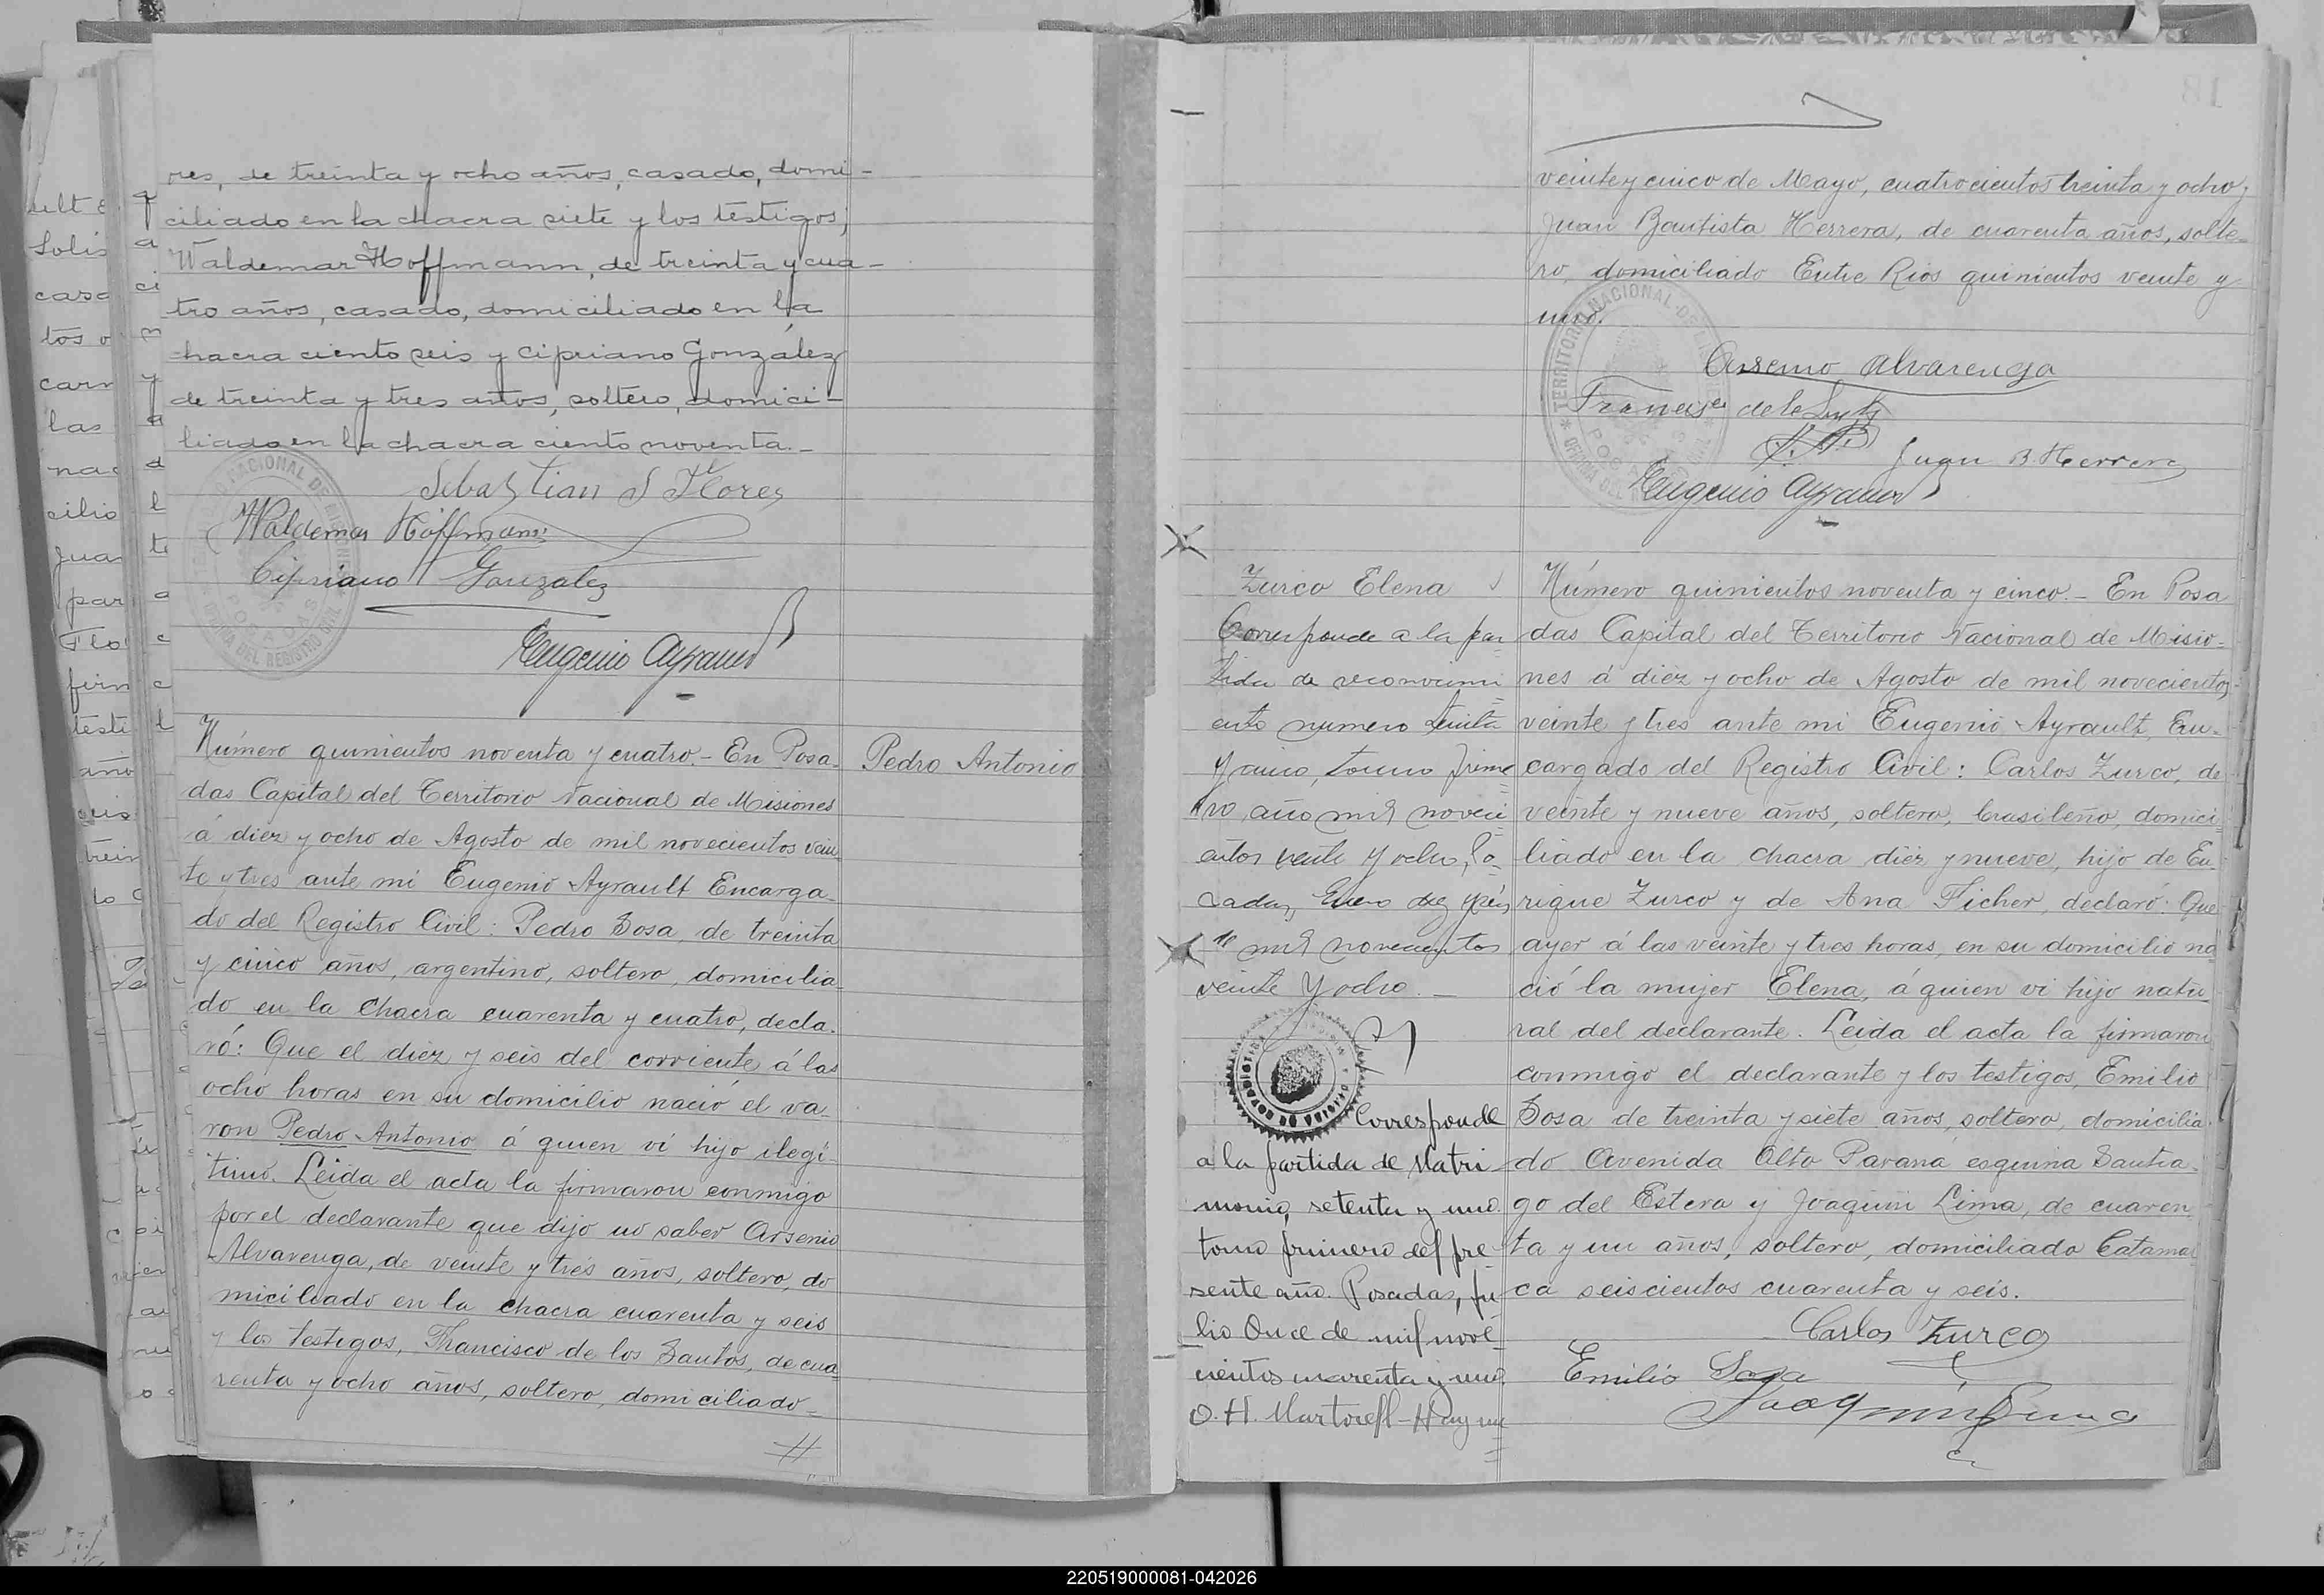 res, de treinta y ocho años, casado, domi-
ciliado en la chacra siete y los testigos,
Waldemar Hoffmann, de treinta y cua-
tro años, casado, domiciliado en la
chacra ciento seis y Cipriano González
de treinta y tres años, soltero, domici-
liado en la chacra ciento noventa.-
Sebastian S Flores
Waldemar Hoffmann
Cipriano Gonzalez
Eugenio Ayrault
Número quinientos noventa y cuatro.- En Posa-
Pedro Antonio
das Capital del Territorio Nacional de Misiones
á diez y ocho de Agosto de mil novecientos vein
te y tres ante mi Eugenio Ayrault Encarga-
do del Registro Civil: Pedro Sosa, de treinta
y cinco años, argentino, soltero, domicilia-
do en la chacra cuarenta y cuatro, decla-
ró: Que el diez y seis del corriente á las
ocho horas en su domicilio nació el va-
ron Pedro Antonio á quien vi hijo ilegi-
timo. Leida el acta la firmaron conmigo
por el declarante que dijo no saber Arsenio
Alvarenga, de veinte y tres años, soltero, do
miciliado en la chacra cuarenta y seis
y los testigos, Francisco de los Santos, de cua
renta y ocho años, soltero, domiciliado-
veinte y cinco de Mayo, cuatrocientos treinta y ocho y
Juan Bautista Herrera, de cuarenta años, solte-
ro, domiciliado Entre Rios quinientos veinte y
uno.
Arsenio Alvarenga
Juan B. Herrera
Eugenio Ayrault
Zurco Elena
Corresponde a la par
tida de reconocimi
ento numero treinta
y cinco, tomo prime
ro, año mil noveci
entos veinte y ocho, Po
sadas, Enero diez y seis
de mil novecientos
veinte y ocho.-
Corresponde
a la partida de Matri-
monio, setenta y uno
tomo primero del pre-
sente año. Posadas, Ju-
lio Once de mil nove-
cientos cuarenta y uno.
Número quinientos noventa y cinco.- En Posa
das Capital del Territorio Nacional de Misio-
nes á diez y ocho de Agosto de mil novecientos
veinte y tres ante mi Eugenio Ayrault, En-
cargado del Registro Civil: Carlos Zurco, de
veinte y nueve años, soltero, brasileño, domici-
liado en la chacra diez y nueve, hijo de En
rique Zurco y de Ana Ficher, declaró: Que
ayer á las veinte y tres horas, en su domicilio na
ció la mujer Elena, á quien vi hijo natu-
ral del declarante. Leida el acta la firmaron
conmigo el declarante y los testigos, Emilio
Sosa de treinta y siete años, soltero, domicilia-
do Avenida Alto Paraná esquina Santia-
go del Estero y Joaquin Lima, de cuaren
ta y un años, soltero, domiciliado Catamar
ca seiscientos cuarenta y seis.
Carlos Zurco
Emilio Sosa
Joaquin Lima
220519000081-042026